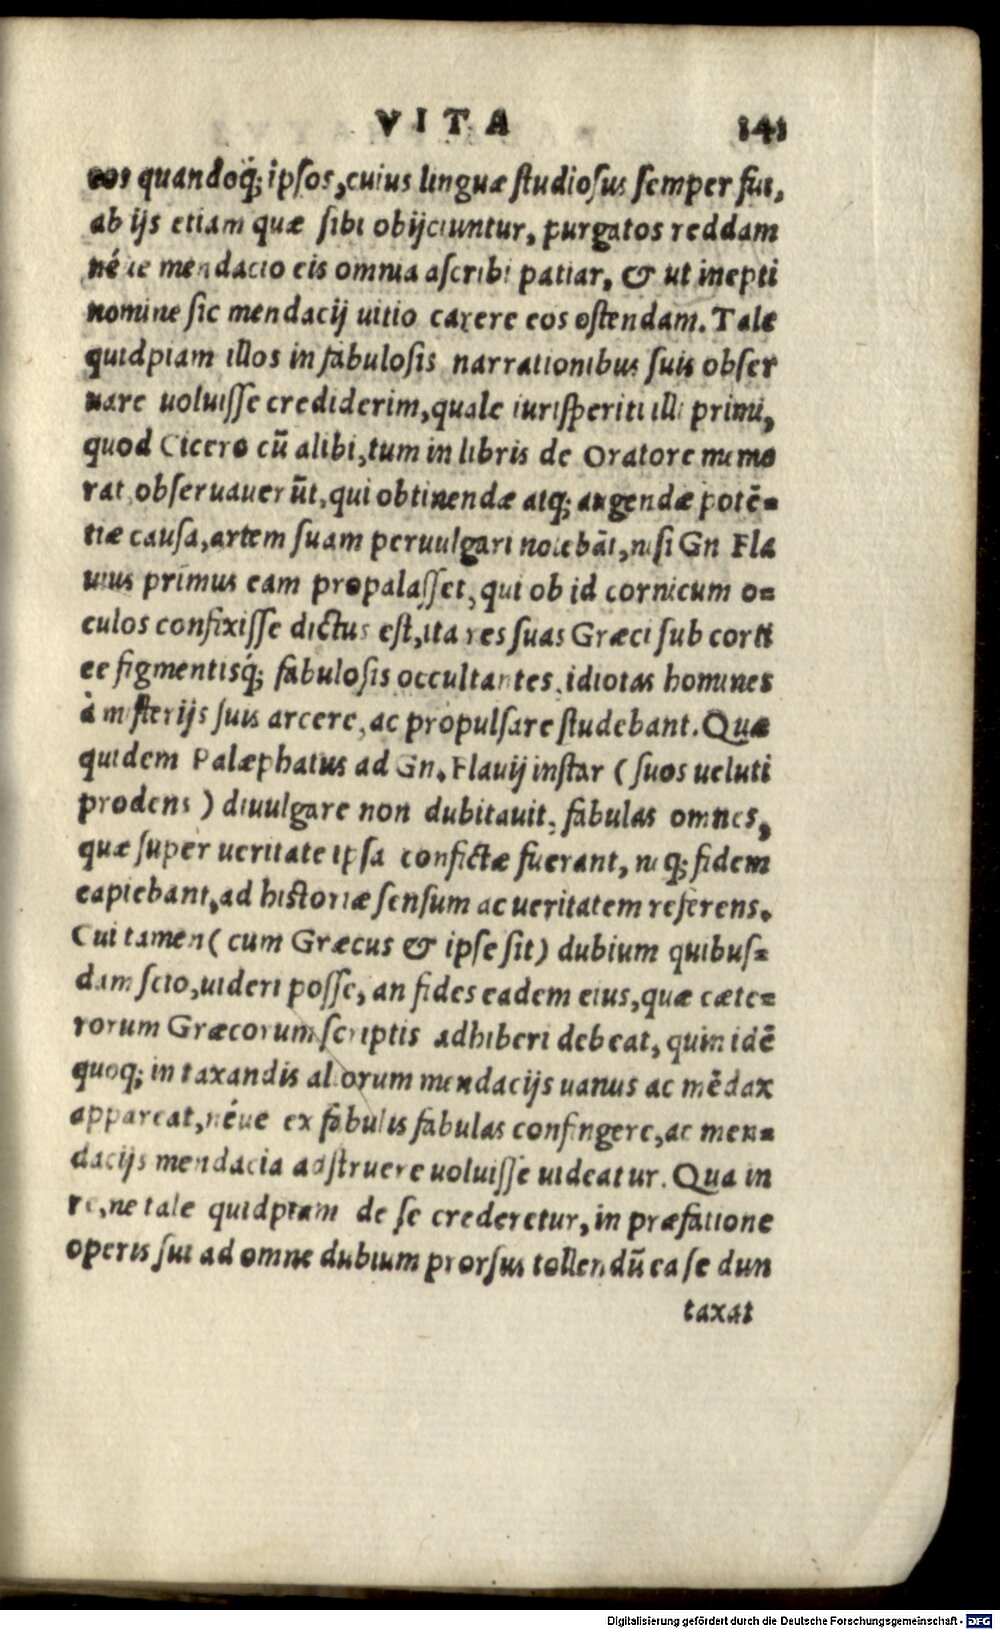 VITA 141
eos quandoq́; ipsos, cuius linguæ studiosus semper fui,
ab ijs etiam quæ sibi obijciuntur, purgatos reddam
néue mendacio eis omnia ascribi patiar, & ut inepti
nomine sic mendacij uitio carere eos ostendam. Tale
quidpiam illos in fabulosis narrationibus suis obser
uare uoluisse crediderim, quale iurisperiti illi primi,
quod Cicero cũ alibi, tum in libris de Oratore memo
rat, obseruauerũt, qui obtinendæ atq; augendæ potẽ=
tiæ causa, artem suam peruulgari nolebãt, nisi Gn Fla
uius primus eam propalasset, qui ob id cornicum o=
culos confixisse dictus est, ita res suas Græci sub corti
ce figmentisq́; fabulosis occultantes, idiotas homines
à misterijs suis arcere, ac propulsare studebant. Quæ
quidem Palæphatus ad Gn. Flauij instar (suos ueluti
prodens) diuulgare non dubitauit, fabulas omnes,
quæ super ueritate ipsa confictæ fuerant, neq; fidem
capiebant, ad historiæ sensum ac ueritatem referens.
Cui tamen (cum Græcus & ipse sit) dubium quibus=
dam scio, uideri posse, an fides eadem eius, quæ cæte=
rorum Græcorum scriptis adhiberi debeat, quin idẽ
quoq; in taxandis aliorum mendacijs uanus ac mẽdax
appareat, néue ex fabulis fabulas confingere, ac men=
dacijs mendacia adstruere uoluisse uideatur. Qua in
re, ne tale quidpiam de se crederetur, in præfatione
operis sui ad omne dubium prorsus tollendũ ea se dun
taxat
Digitalisierung gefördert durch die Deutsche Forschungsgemeinschaft - DFG